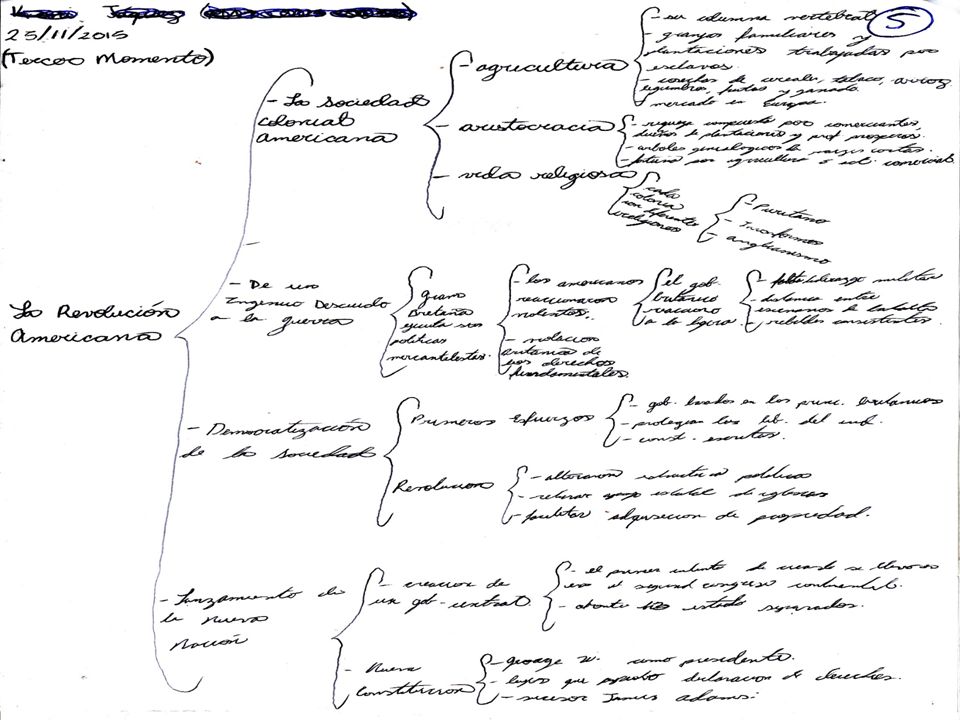 25/11/2015
(Tercer Momento)
5
La Revolución
Americana
- La sociedad
colonial
americana
- agricultura
- ser columna vertebral
- granjas familiares y
plantaciones trabajadas por
esclavos.
- cosechas de cereales, tabaco, arroz
legumbres, frutas y ganado
- mercado en Europa.
- aristocracia
- riqueza compuesta por comerciantes,
dueños de plantaciones y prof. prosperos.
- arboles genealogicos de raices cortas.
por agricultura o act. comercial.
- vida religiosa
cada
colonia
con diferentes
religiones
- Puritano
-
- anglicanismo
- De un
Ingenuo Descuido
a la guerra
gran
Bretaña
ejecuta sus
politicas
mercantelistas.
- los americanos
reaccionaron
violentos.
- violacion
britanica de
sus derechos
fundamentales.
el gob.
britanico
vacuaro
a la ligera
- falta liderazgo militar
- distancia entre
escenarios de batalla
- rebeldes insistentes.
- Democratización
de la sociedad
Primeros Esfuerzos
- gob. basados en los princ. britanicos
- protegian las lib. del ind.
- const. escritas.
Revolucion
- alteracion estructura politica
- retirar apoyo estatal de iglesias
- facilitar adquisicion de propiedad.
- Lanzamiento de
la nueva
Nación
- creacion de
un gob. central
- el primer intento de crearlo se llevo
en el segundo congreso continental.
- estado separados.
- Nueva
Constitución
- george W. como presidente.
- leyes que declaracion de derechos.
- sucesor James Adams.